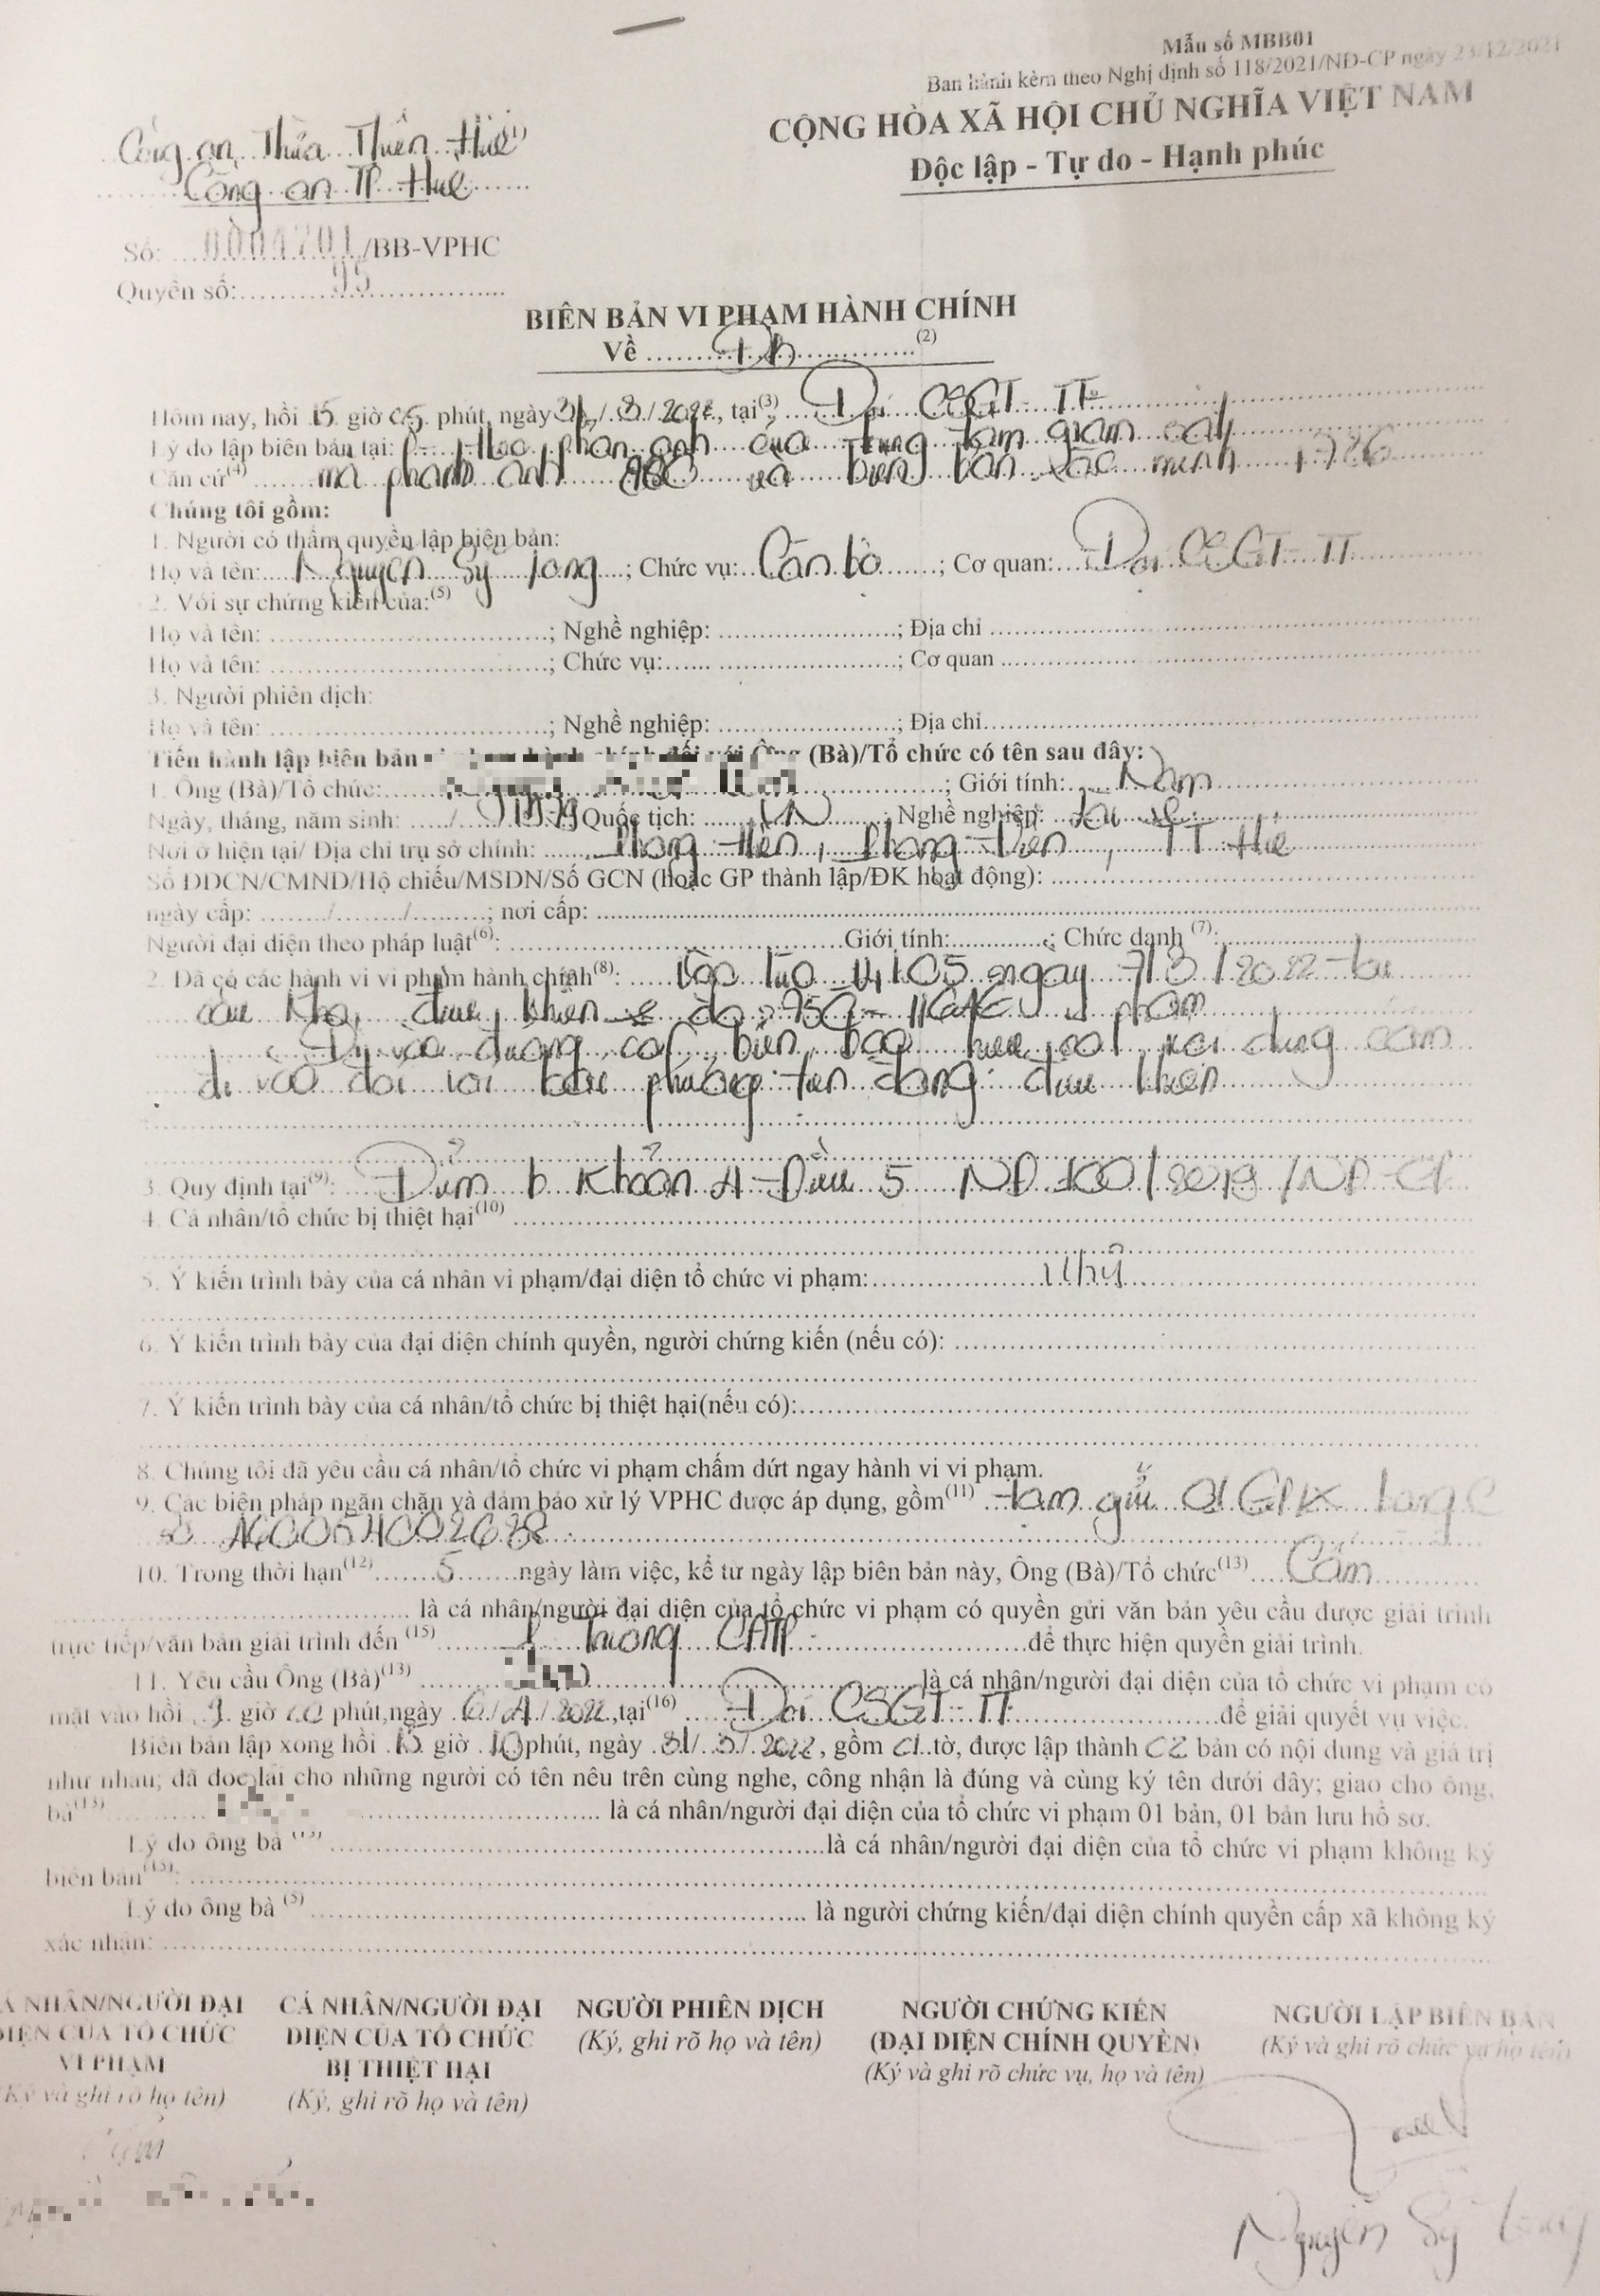 Mẫu số MBB01
Ban hành kèm theo Nghị định số 118/2021/NĐ-CP ngày 23/12/2021
CỘNG HÒA XÃ HỘI CHỦ NGHĨA VIỆT NAM
Độc lập - Tự do - Hạnh phúc
Công an Thừa Thiên Huế (1)
Công an TP Huế
Số: 0004701/BB-VPHC
Quyển số: 95
BIÊN BẢN VI PHẠM HÀNH CHÍNH
Về (2)
Hôm nay, hồi 15 giờ 05 phút, ngày 31/3/2022, tại(3) Đội CSGT-TT
Lý do lập biên bản tại: theo phản ánh của trung tâm giám sát
Căn cứ(4) mã phản ánh và biên bản xác minh
Chúng tôi gồm:
1. Người có thẩm quyền lập biên bản:
Họ và tên: Nguyễn Sỹ Long; Chức vụ: Cán bộ; Cơ quan: Đội CSGT-TT
2. Với sự chứng kiến của:(5)
Họ và tên: ; Nghề nghiệp: ; Địa chỉ
Họ và tên: ; Chức vụ: ; Cơ quan
3. Người phiên dịch:
Họ và tên: ; Nghề nghiệp: ; Địa chỉ
Tiến hành lập biên bản vi phạm hành chính đối với Ông (Bà)/Tổ chức có tên sau đây:
1. Ông (Bà)/Tổ chức: ; Giới tính: Nam
Ngày, tháng, năm sinh: Quốc tịch: VN; Nghề nghiệp: Lái xe
Nơi ở hiện tại/ Địa chỉ trụ sở chính: Phong Hiền, Phong Điền, TT Huế
Số ĐDCN/CMND/Hộ chiếu/MSDN/Số GCN (hoặc GP thành lập/ĐK hoạt động):
ngày cấp: / / ; nơi cấp:
Người đại diện theo pháp luật(6): Giới tính: ; Chức danh (7):
2. Đã có các hành vi vi phạm hành chính(8): Vào lúc 14h05 ngày 7/3/2022 tại
điều khiển xe vi phạm
Đi vào đường có biển báo hiệu có nội dung cấm
đi vào đối với loại phương tiện đang điều khiển
3. Quy định tại(9): Điểm b Khoản 4 Điều 5 NĐ 100/2019/NĐ-CP
4. Cá nhân/tổ chức bị thiệt hại(10)
5. Ý kiến trình bày của cá nhân vi phạm/đại diện tổ chức vi phạm:
6. Ý kiến trình bày của đại diện chính quyền, người chứng kiến (nếu có):
7. Ý kiến trình bày của cá nhân/tổ chức bị thiệt hại(nếu có):
8. Chúng tôi đã yêu cầu cá nhân/tổ chức vi phạm chấm dứt ngay hành vi vi phạm.
9. Các biện pháp ngăn chặn và đảm bảo xử lý VPHC được áp dụng, gồm(11) tạm giữ 01 GPLX hạng C
số
10. Trong thời hạn(12) 5 ngày làm việc, kể từ ngày lập biên bản này, Ông (Bà)/Tổ chức(13)
là cá nhân/người đại diện của tổ chức vi phạm có quyền gửi văn bản yêu cầu được giải trình
trực tiếp/văn bản giải trình đến (15) Trưởng CATP để thực hiện quyền giải trình.
11. Yêu cầu Ông (Bà)(13) là cá nhân/người đại diện của tổ chức vi phạm có
mặt vào hồi giờ phút,ngày 6/4/2022,tại(16) Đội CSGT-TT để giải quyết vụ việc.
Biên bản lập xong hồi 15 giờ 10 phút, ngày 31/3/2022, gồm 01 tờ, được lập thành 02 bản có nội dung và giá trị
như nhau; đã đọc lại cho những người có tên nêu trên cùng nghe, công nhận là đúng và cùng ký tên dưới đây; giao cho ông,
bà(13) là cá nhân/người đại diện của tổ chức vi phạm 01 bản, 01 bản lưu hồ sơ.
Lý do ông bà (13) là cá nhân/người đại diện của tổ chức vi phạm không ký
biên bản(13):
Lý do ông bà (5) là người chứng kiến/đại diện chính quyền cấp xã không ký
xác nhận:
CÁ NHÂN/NGƯỜI ĐẠI DIỆN CỦA TỔ CHỨC VI PHẠM
(Ký và ghi rõ họ tên)
CÁ NHÂN/NGƯỜI ĐẠI
DIỆN CỦA TỔ CHỨC
BỊ THIỆT HẠI
(Ký, ghi rõ họ và tên)
NGƯỜI PHIÊN DỊCH
(Ký, ghi rõ họ và tên)
NGƯỜI CHỨNG KIẾN
(ĐẠI DIỆN CHÍNH QUYỀN)
(Ký và ghi rõ chức vụ, họ và tên)
NGƯỜI LẬP BIÊN BẢN
(Ký và ghi rõ chức vụ họ tên)
Nguyễn Sỹ Long